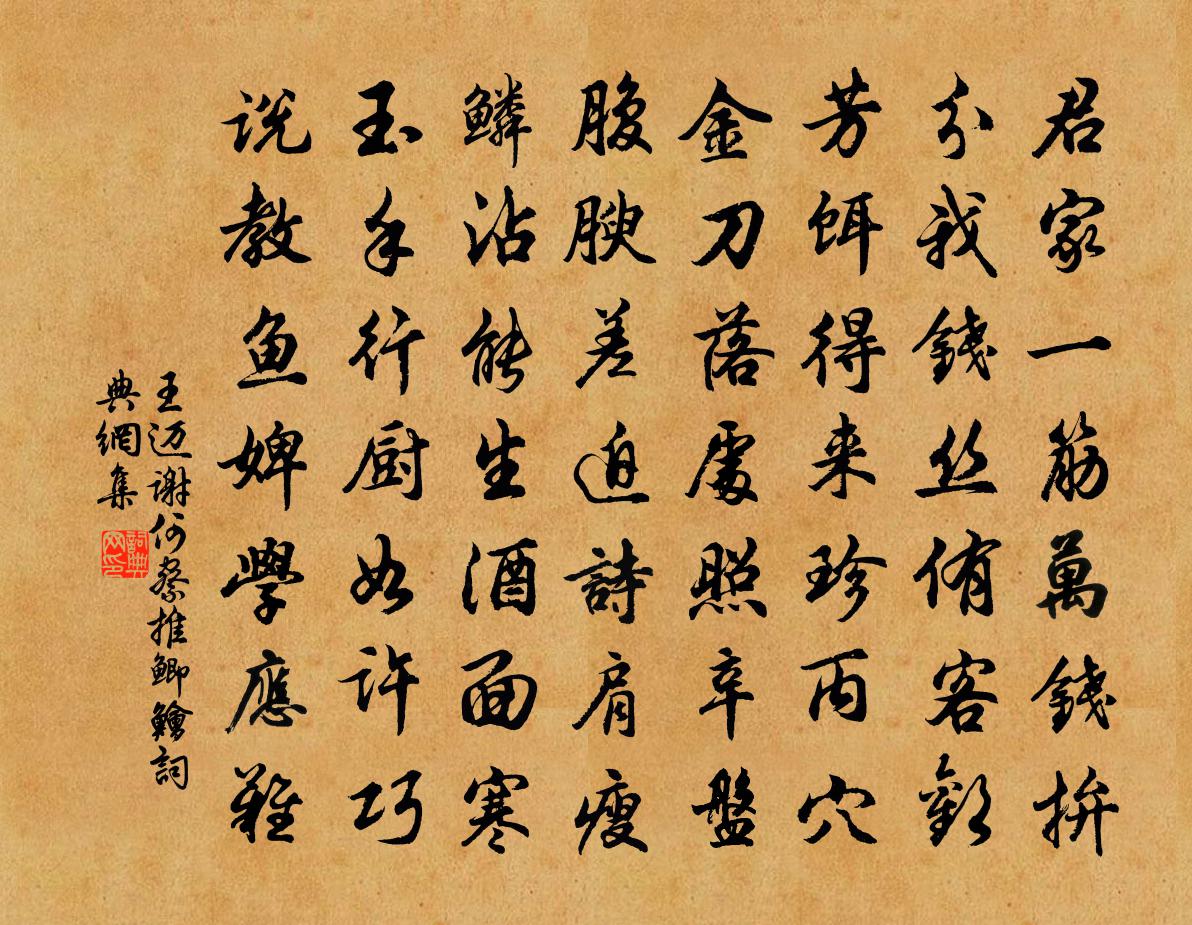 君家一筯萬錢拚
分我錢丝侑客歡
芳餌得来珍丙穴
金刀落處照辛盤
腹腴差迫詩肩瘦
鱗沾能生酒面寒
玉手行厨如許巧
说教魚婢學應難
王迈謝何察推鯽鱠詞
典網集
詞典
网印